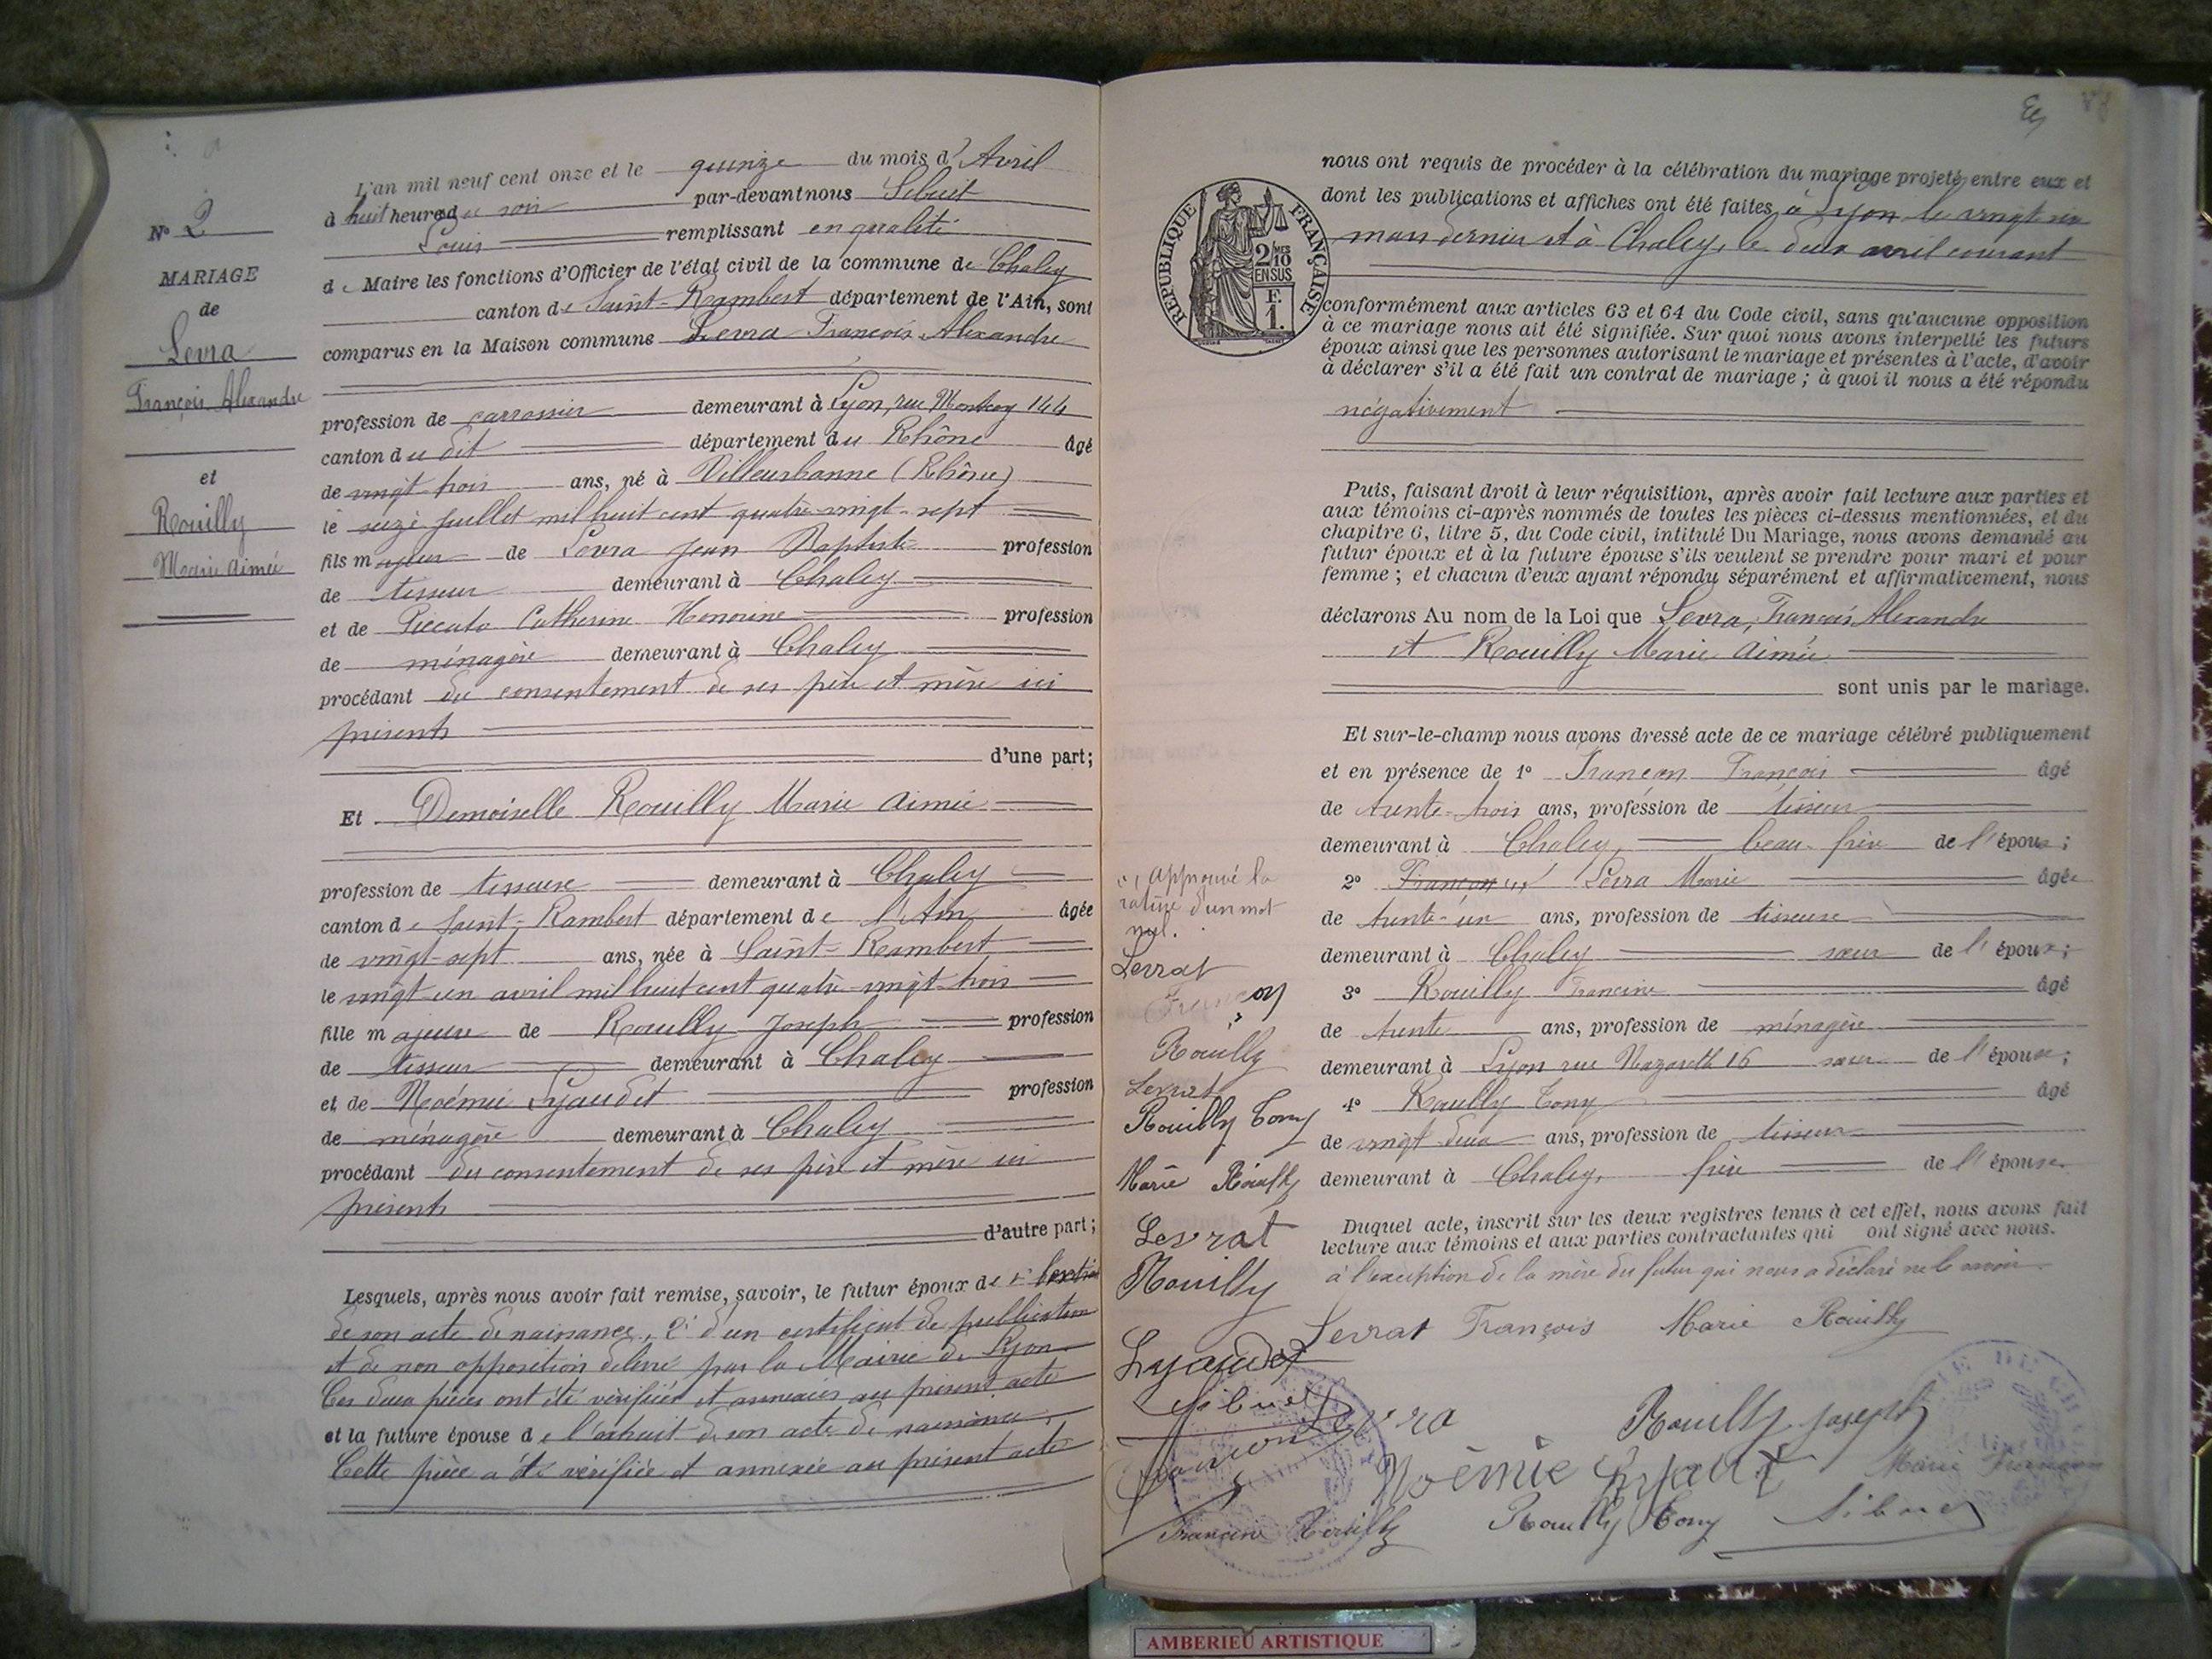 N° 2
MARIAGE
de
Levra
François Alexandre
et
Rouilly
Marie Aimée
L'an mil neuf cent onze et le quinze du mois d'Avril
à huit heures du soir par-devant nous Sibuet
Louis remplissant en qualité
de Maire les fonctions d'Officier de l'état civil de la commune de Chaley
canton de Saint-Rambert département de l'Ain, sont
comparus en la Maison commune Levra François Alexandre
profession de carrossier demeurant à Lyon, rue Montcey 144
canton du dit département du Rhône âgé
de vingt-trois ans, né à Villeurbanne (Rhône)
le seize juillet mil huit cent quatre-vingt-sept
fils majeur de Levra Jean Baptiste profession
de tisseur demeurant à Chaley
et de Piccato Catherine Honorine profession
de ménagère demeurant à Chaley
procédant du consentement de ses père et mère ici
présents
d'une part;
Et Demoiselle Rouilly Marie Aimée
profession de tisseuse demeurant à Chaley
canton de Saint-Rambert département de l'Ain âgée
de vingt-sept ans, née à Saint-Rambert
le vingt-un avril mil huit cent quatre-vingt-trois
fille majeure de Rouilly Joseph profession
de tisseur demeurant à Chaley
et de Noémie Lyaudet profession
de ménagère demeurant à Chaley
procédant du consentement de ses père et mère ici
présents
d'autre part;
Lesquels, après nous avoir fait remise, savoir, le futur époux de 1° l'extrait
de son acte de naissance, 2° d'un certificat de publication
et de non opposition délivré par la Mairie de Lyon
Ces deux pièces ont été vérifiées et annexées au présent acte
et la future épouse de l'extrait de son acte de naissance,
Cette pièce a été vérifiée et annexée au présent acte
RÉPUBLIQUE FRANÇAISE
2 MES
10
EN SUS
F.
1.
nous ont requis de procéder à la célébration du mariage projeté entre eux et
dont les publications et affiches ont été faites à Lyon le vingt six
mars dernier et à Chaley, le deux avril courant
conformément aux articles 63 et 64 du Code civil, sans qu'aucune opposition
à ce mariage nous ait été signifiée. Sur quoi nous avons interpellé les futurs
époux ainsi que les personnes autorisant le mariage et présentes à l'acte, d'avoir
à déclarer s'il a été fait un contrat de mariage; à quoi il nous a été répondu
négativement
Puis, faisant droit à leur réquisition, après avoir fait lecture aux parties et
aux témoins ci-après nommés de toutes les pièces ci-dessus mentionnées, et du
chapitre 6, litre 5, du Code civil, intitulé Du Mariage, nous avons demandé au
futur époux et à la future épouse s'ils veulent se prendre pour mari et pour
femme; et chacun d'eux ayant répondu séparément et affirmativement, nous
déclarons Au nom de la Loi que Levra, François Alexandre
et Rouilly Marie Aimée
sont unis par le mariage.
Et sur-le-champ nous avons dressé acte de ce mariage célébré publiquement
et en présence de 1° Françon François âgé
de trente-trois ans, profession de tisseur
demeurant à Chaley, beau-frère de l'époux;
2° Françon Levra Marie âgée
de trente-un ans, profession de tisseuse
demeurant à Chaley sœur de l'époux;
3° Rouilly Francine âgé
de trente ans, profession de ménagère
demeurant à Lyon rue Nazareth 16 sœur de l'épouse;
4° Rouilly Tony âgé
de vingt-deux ans, profession de tisseur
demeurant à Chaley, frère de l'épouse
Duquel acte, inscrit sur les deux registres tenus à cet effet, nous avons fait
lecture aux témoins et aux parties contractantes qui ont signé avec nous.
à l'exception de la mère du futur qui nous a déclaré ne le savoir
Approuvé la
rature d'un mot
nul.
Levrat
Françon
Rouilly
Levrat
Rouilly Tony
Marie Rouilly
Levrat
Rouilly
Lyaudet
Sibuet
Levrat François Marie Rouilly
Levra Rouilly Joseph
Françon
Noémie Lyaudet Marie Françon
Francine Rouilly Rouilly Tony Sibuet
AMBERIEU ARTISTIQUE